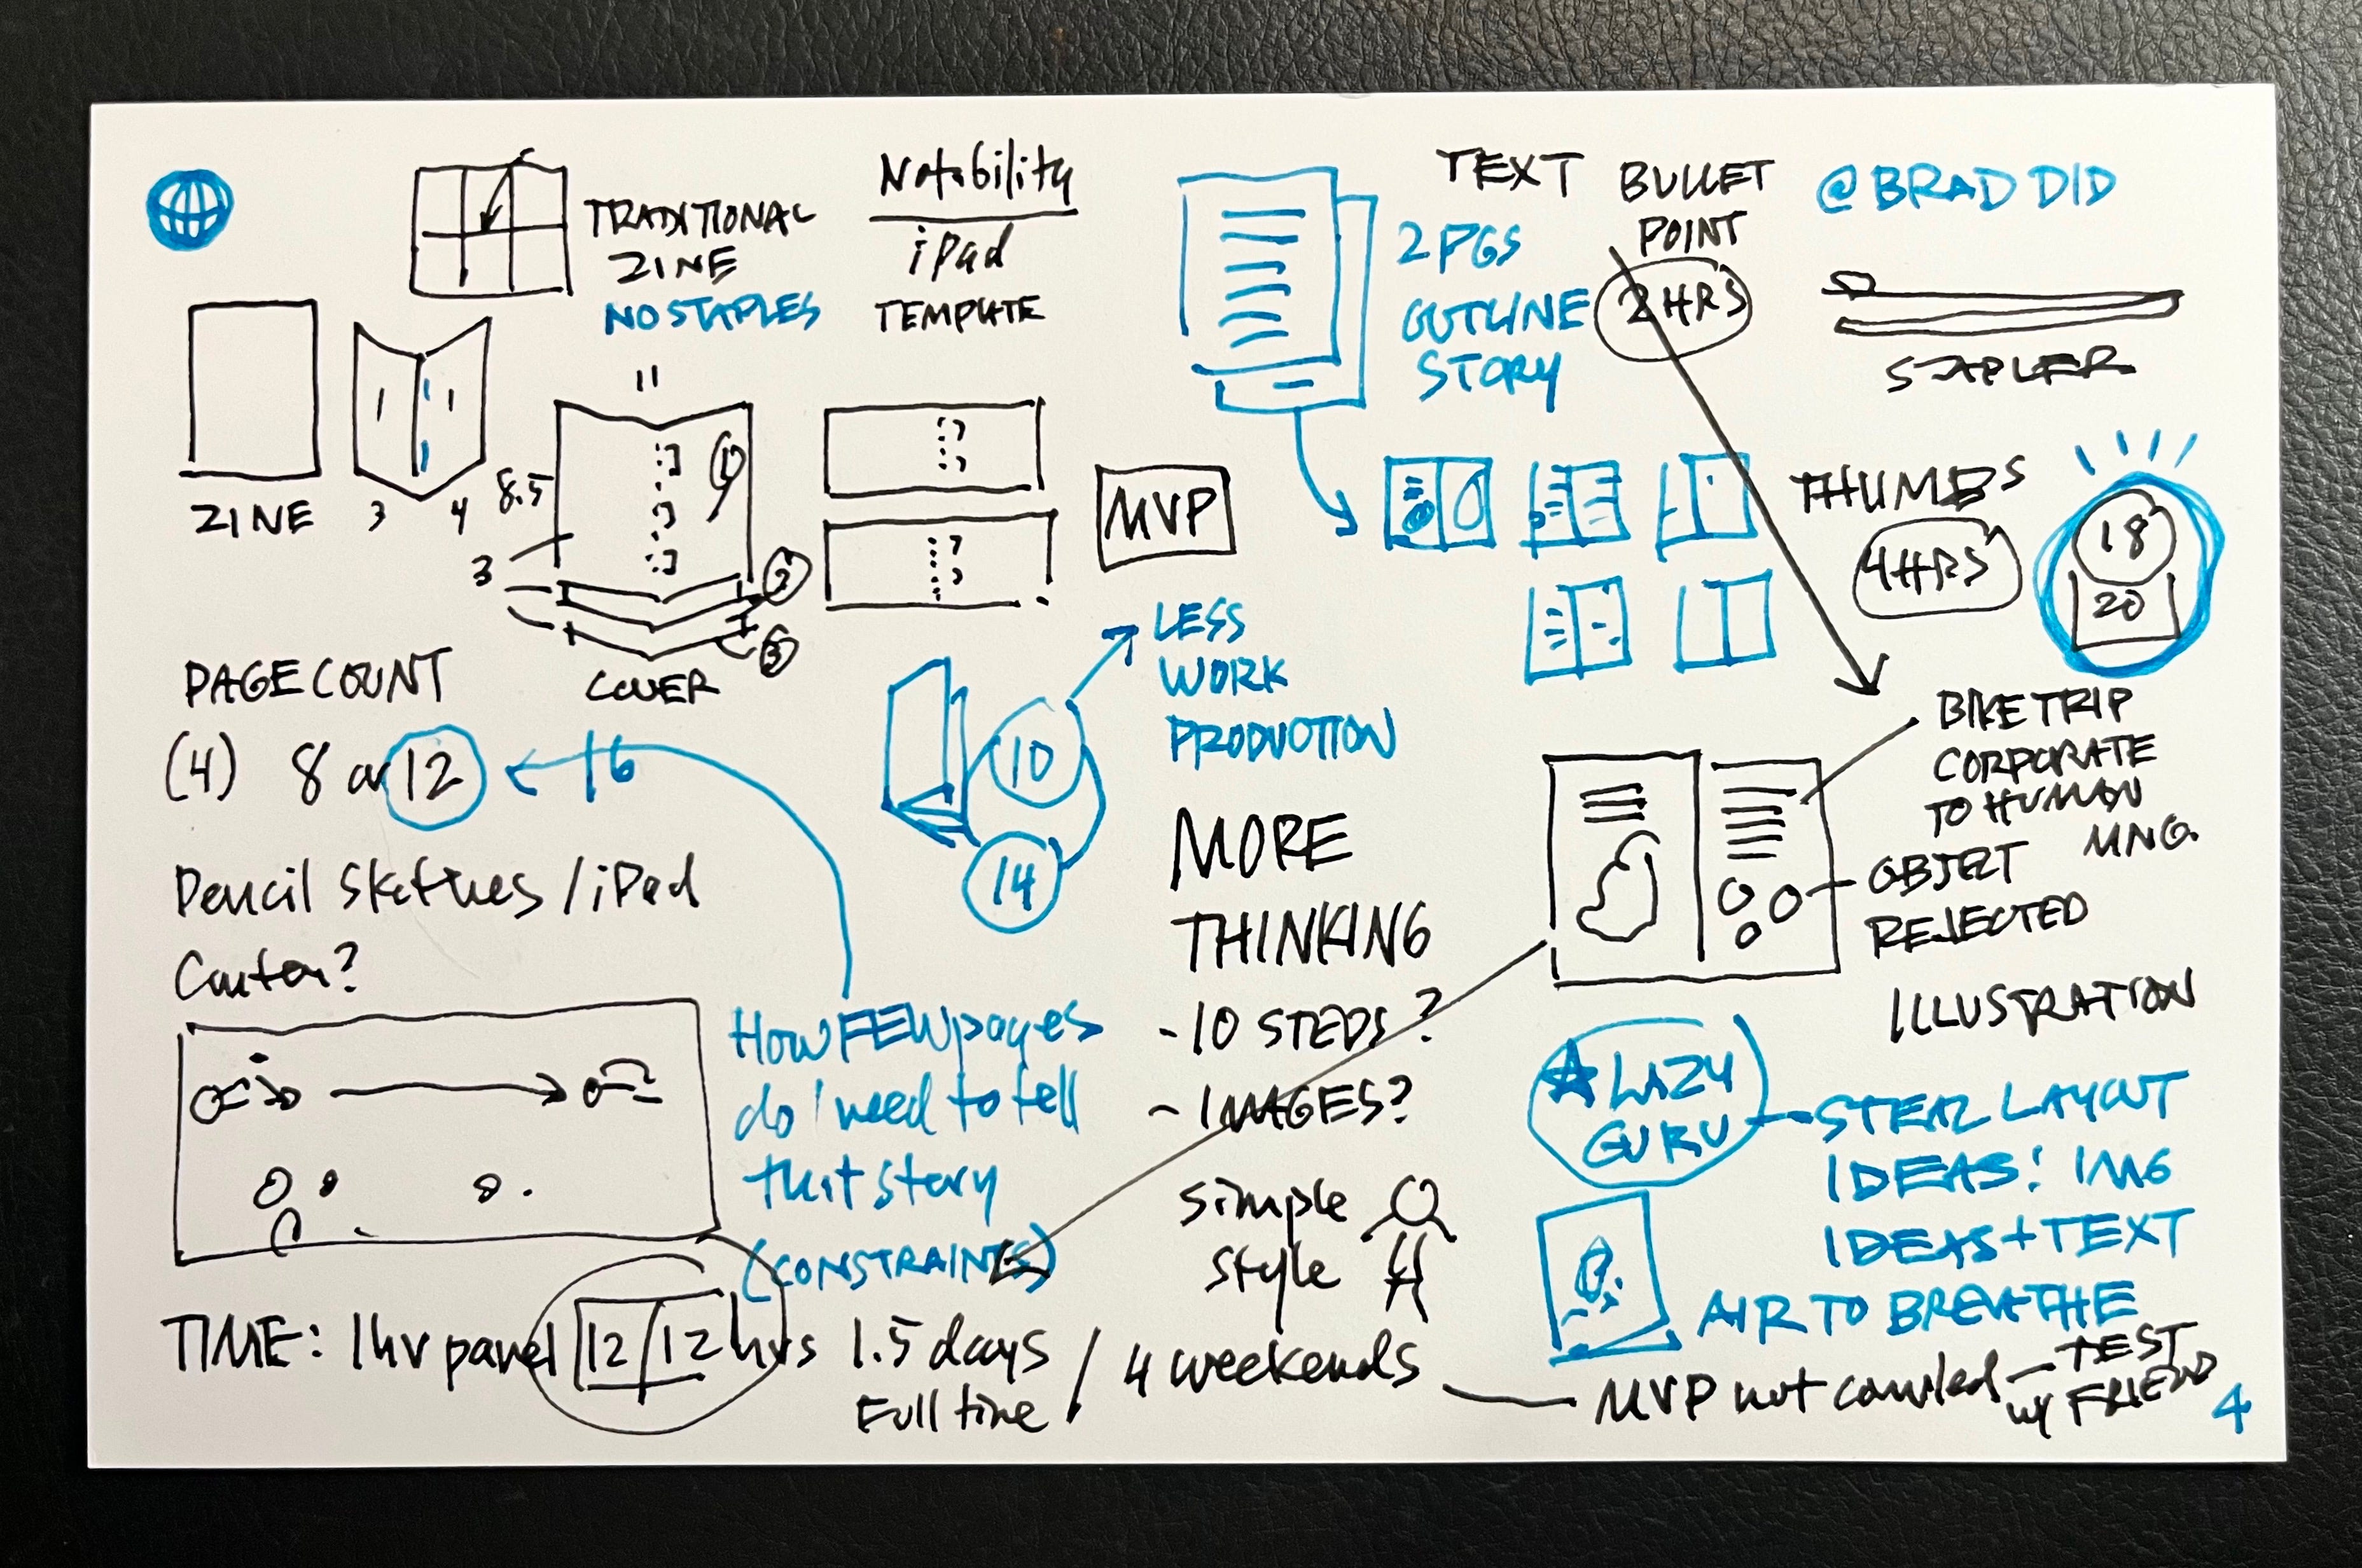 TRADITIONAL
ZINE
NO STAPLES
Notability
iPad
TEMPLATE
ZINE
3 4
11
8.5
1
3
2
3
COVER
MVP
PAGE COUNT
(4) 8 or 12
16
10
14
LESS
WORK
PRODUCTION
Pencil Sketches / iPad
How FEW pages
do I need to tell
that story
(CONSTRAINTS)
MORE
THINKING
- 10 STEPS?
- IMAGES?
Simple
Style
TIME: 1 hr panel 12/12 hrs 1.5 days / 4 weekends
Full time
TEXT
2 PGS
OUTLINE
STORY
BULLET
POINT
2 HRS
@BRAD DID
STAPLER
THUMBS
4 HRS
18
20
BIKE TRIP
CORPORATE
TO HUMAN
MNG.
OBJECT
REJECTED
ILLUSTRATION
LAZY
GURU
STEAL LAYOUT
IDEAS! IMG
IDEAS + TEXT
AIR TO BREATHE
MVP not
TEST
w/ FRIEND
4